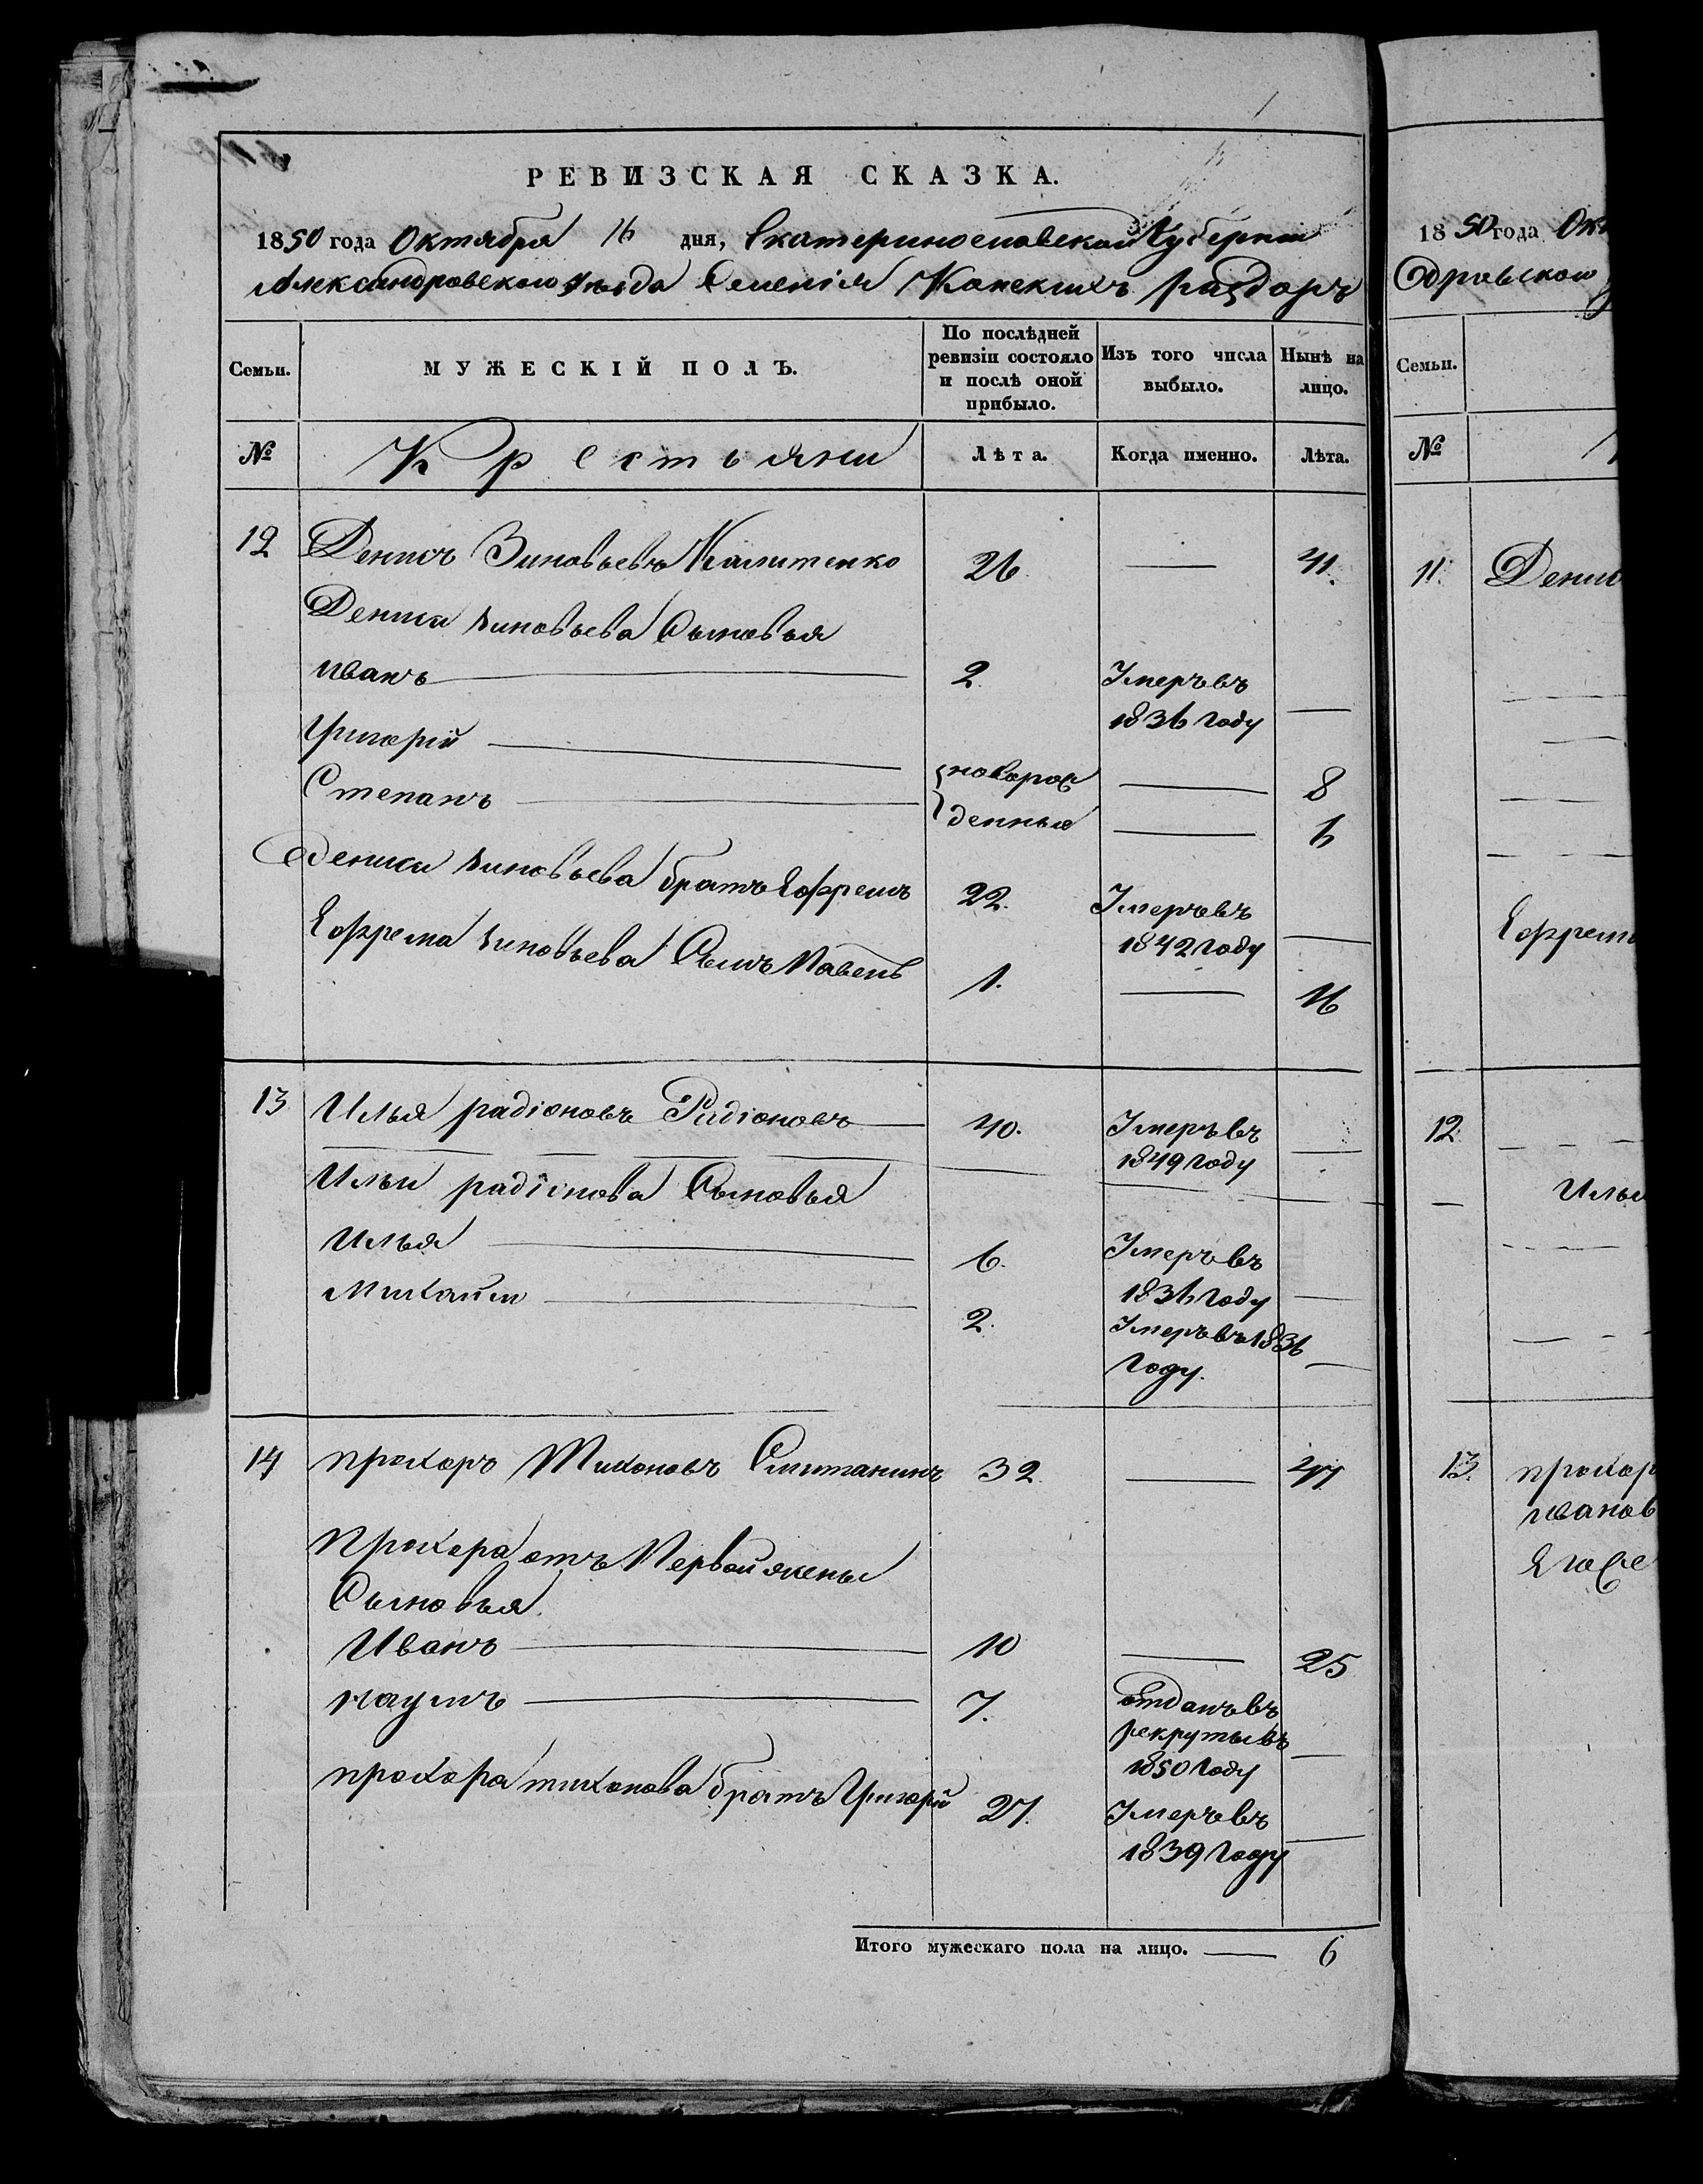 РЕВИЗСКАЯ СКАЗКА.
1850 года Октября 16 дня, Екатеринославской Губернии
Александровского уѣзда Селенія Конскихъ раздоръ
Семьи.
МУЖЕСКІЙ ПОЛЪ.
По послѣдней ревизіи состояло и послѣ оной прибыло.
Изъ того числа выбыло.
Нынѣ на лицо.
№
Крестьяни
Лѣта.
Когда именно.
Лѣта.
12 Денисъ Зиновьевъ Калитенко 26. — 41.
Дениса зиновьева Сыновья
Иванъ — 2. Умеръ въ
1836 году —
Григорій — новорож — 8
Степанъ — денныя — 6
Дениса зиновьева братъ Ефремъ 22. Умеръ въ
1842 году —
Ефрема зиновьева Сынъ Павелъ 1. — 16
13 Илья радіоновъ Радіоновъ — 40. Умеръ въ
1849 году —
Ильи радіонова Сыновья
Илья — 6. Умеръ въ
1836 году —
Михаилъ — 2. Умеръ въ 1836
году. —
14 прохоръ Тихоновъ 32 — 47
Прохора отъ Первой жены
Сыновья.
Иванъ — 10 — 25
наумъ — 7. отданъ въ
рекруты въ
1850 году —
прохора тихонова братъ Григорій 27. Умеръ въ
1839 году —
Итого мужескаго пола на лицо. — 6
1850 года Ок
дровского
Семьи.
№
11. Дени
Ефрем
12.
Ильи
13. прохор
иванов